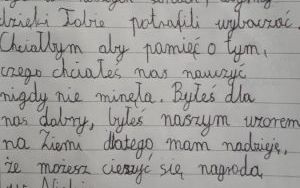 dzięki Tobie potrafili wybaczać.
Chciałbym aby pamięć o tym,
czego chciałeś nas nauczyć
nigdy nie minęła. Byłeś dla
nas dobry, byłeś naszym wzorem
na Ziemi dlatego mam nadzieję,
że możesz cieszyć się nagrodą